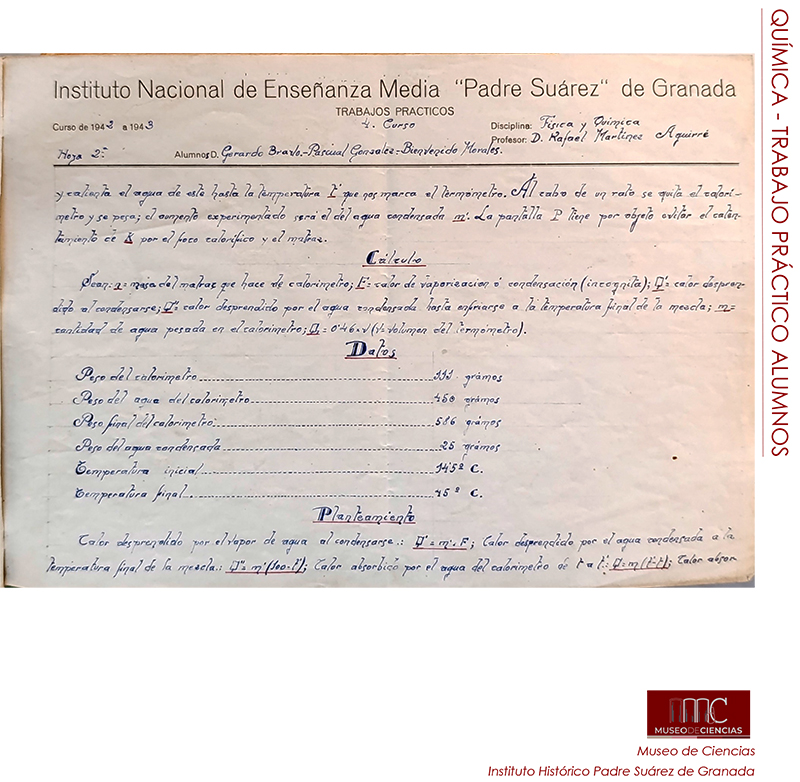 Instituto Nacional de Enseñanza Media "Padre Suárez" de Granada
TRABAJOS PRACTICOS
Curso de 1942 a 1943 4. Curso Disciplina: Física y Química
Profesor: D. Rafael Martínez Aguirré
Hoja 2ª Alumnos D. Gerardo Bravo.-Pascual Gonzalez.-Bienvenido Morales.
y calienta el agua de este hasta la temperatura t' que nos marca el termómetro. Al cabo de un rato se quita el calorí-
metro y se pesa; el aumento experimentado será el del agua condensada m'. La pantalla P tiene por objeto evitar el calen-
tamiento de K por el foco calorífico y el matraz.
Cálculo
Sean: a = masa del matraz que hace de calorimetro; F = calor de vaporización ó condensación (incognita); Q' = calor despren-
dido al condensarse; Q'' = calor desprendido por el agua condensada hasta enfriarse a la temperatura final de la mezcla; m =
cantidad de agua pesada en el calorimetro; Q = 0'46×v (v = volumen del termómetro).
Datos
Peso del calorimetro 111 grámos
Peso del agua del calorimetro 450 grámos
Peso final del calorimetro 586 grámos
Peso del agua condensada 25 grámos
Temperatura inicial 14'5º C.
Temperatura final 45º C.
Planteamiento
Calor desprendido por el vapor de agua al condensarse.: Q' = m'. F; Calor desprendido por el agua condensada a la
temperatura final de la mezcla.: Q'' = m' (100-t'); Calor absorbido por el agua del calorimetro de t a t'.: Q = m (t'-t); Calor absor
QUÍMICA - TRABAJO PRÁCTICO ALUMNOS
MC
MUSEO DE CIENCIAS
Museo de Ciencias
Instituto Histórico Padre Suárez de Granada